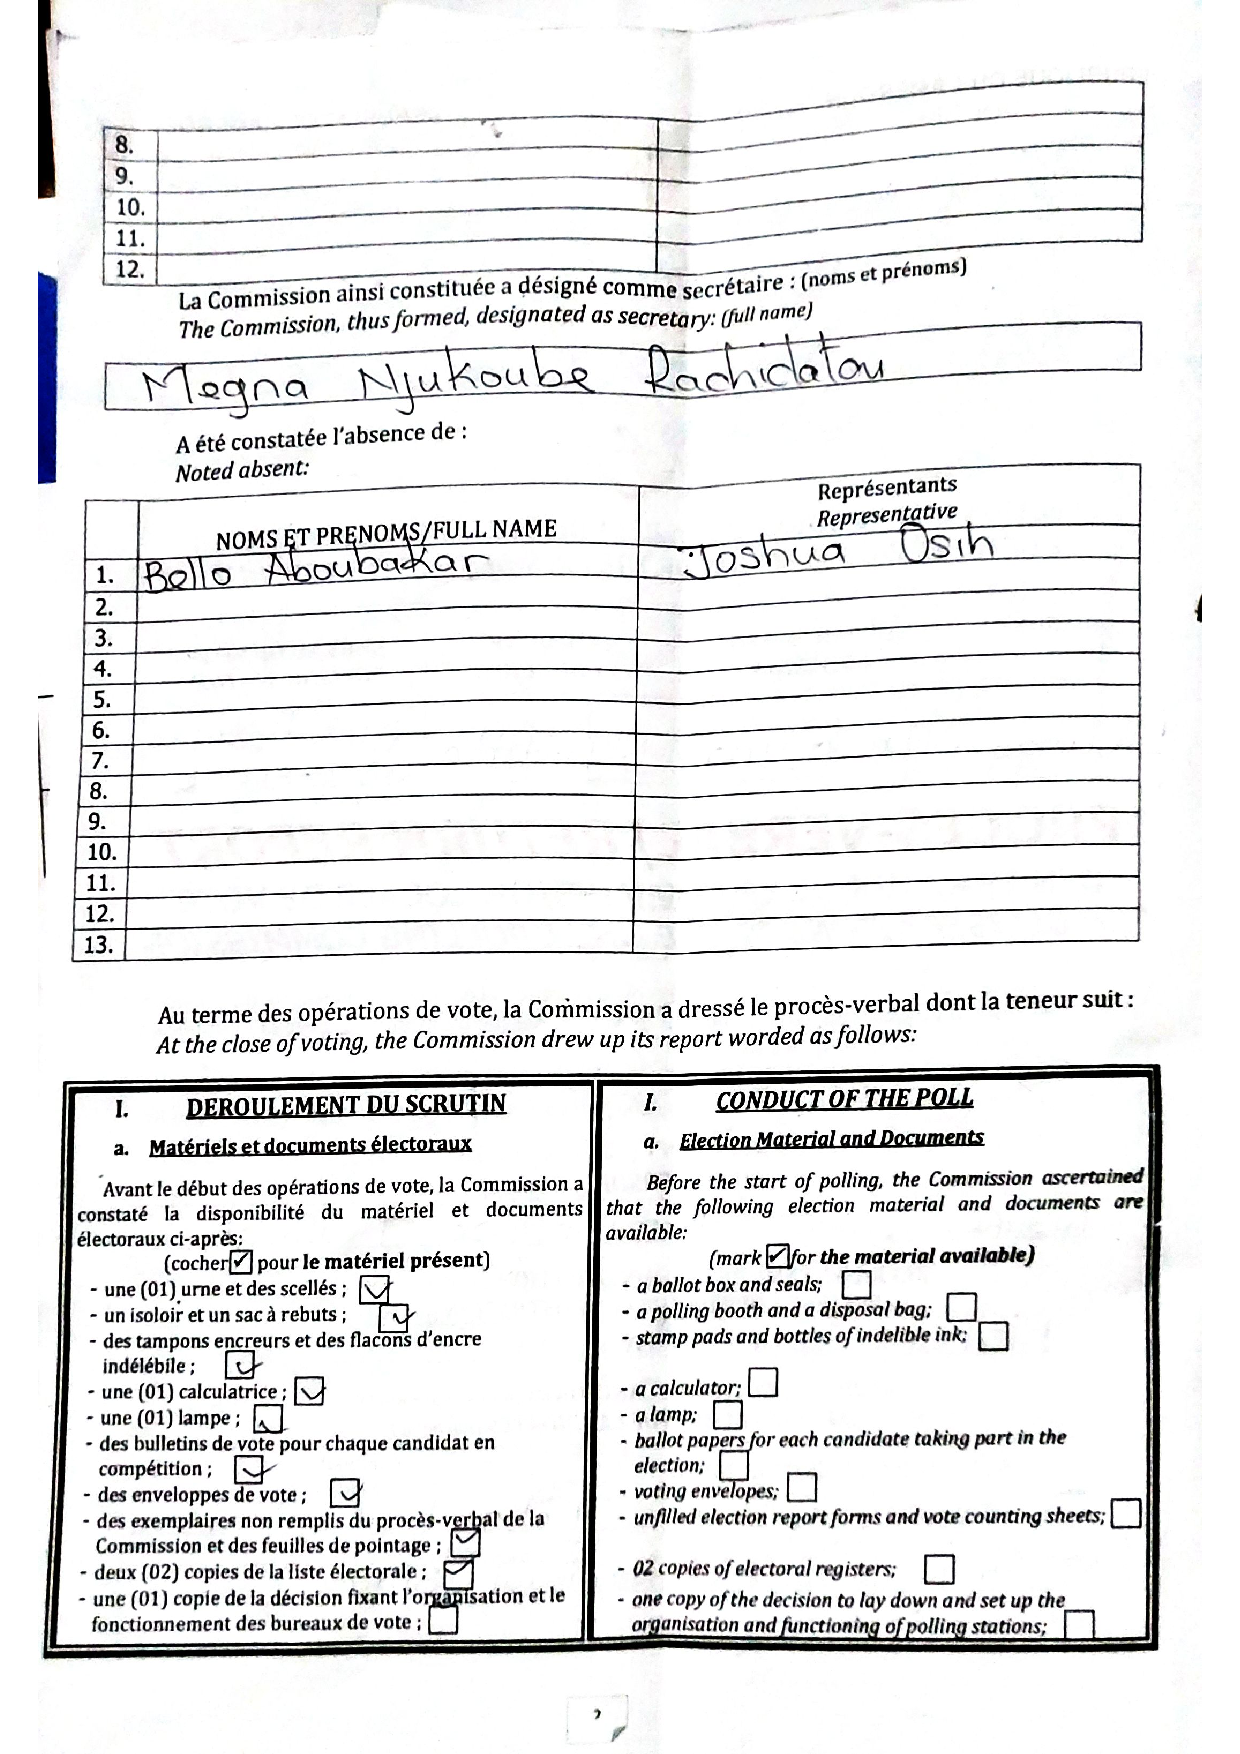 8.
9.
10.
11.
12.
La Commission ainsi constituée a désigné comme secrétaire : (noms et prénoms)
The Commission, thus formed, designated as secretary: (full name)
Megna Njukoube Rachidatou
A été constatée l'absence de :
Noted absent:
NOMS ET PRENOMS/FULL NAME
Représentants
Representative
1. Bello Aboubakar Joshua Osih
2.
3.
4.
5.
6.
7.
8.
9.
10.
11.
12.
13.
Au terme des opérations de vote, la Commission a dressé le procès-verbal dont la teneur suit :
At the close of voting, the Commission drew up its report worded as follows:
I. DEROULEMENT DU SCRUTIN
a. Matériels et documents électoraux
Avant le début des opérations de vote, la Commission a
constaté la disponibilité du matériel et documents
électoraux ci-après:
(cocher ☑ pour le matériel présent)
- une (01) urne et des scellés ; ☑
- un isoloir et un sac à rebuts ; ☑
- des tampons encreurs et des flacons d'encre
indélébile ; ☑
- une (01) calculatrice ; ☑
- une (01) lampe ; ☑
- des bulletins de vote pour chaque candidat en
compétition ; ☑
- des enveloppes de vote ; ☑
- des exemplaires non remplis du procès-verbal de la
Commission et des feuilles de pointage ; ☑
- deux (02) copies de la liste électorale ; ☑
- une (01) copie de la décision fixant l'organisation et le
fonctionnement des bureaux de vote ; ☐
I. CONDUCT OF THE POLL
a. Election Material and Documents
Before the start of polling, the Commission ascertained
that the following election material and documents are
available:
(mark ☑ for the material available)
- a ballot box and seals; ☐
- a polling booth and a disposal bag; ☐
- stamp pads and bottles of indelible ink; ☐
- a calculator; ☐
- a lamp; ☐
- ballot papers for each candidate taking part in the
election; ☐
- voting envelopes; ☐
- unfilled election report forms and vote counting sheets; ☐
- 02 copies of electoral registers; ☐
- one copy of the decision to lay down and set up the
organisation and functioning of polling stations; ☐
2